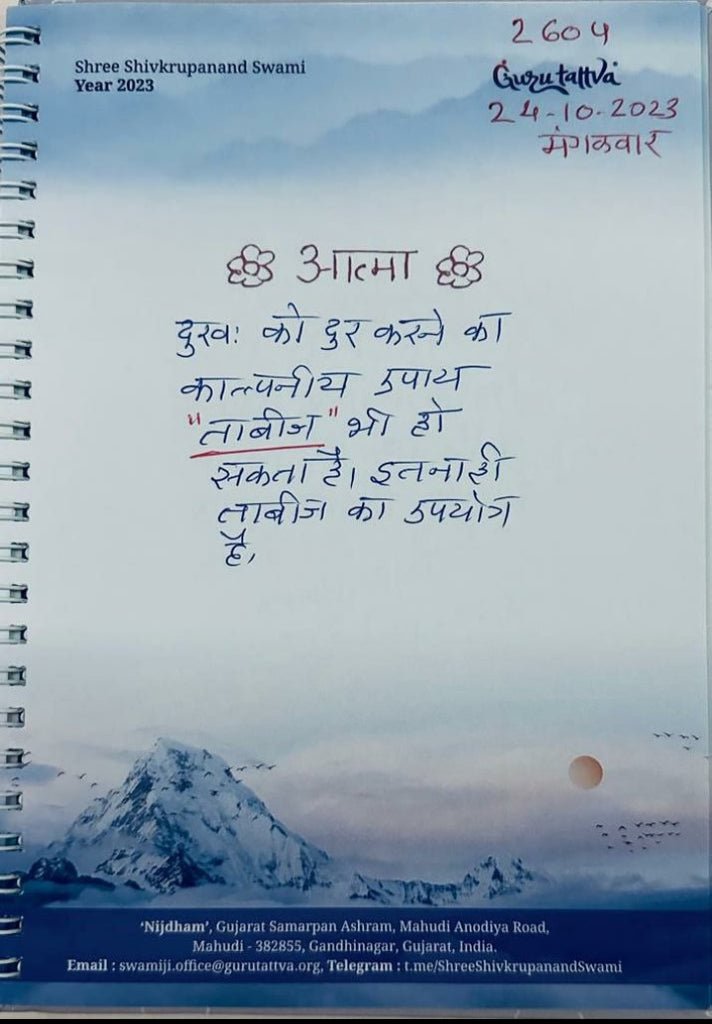 2604
Shree Shivkrupanand Swami
Year 2023
Gurutattva
24-10-2023
मंगळवार
आत्मा
दुखः को दुर करने का
काल्पनीय उपाय
"ताबीज" भी हो
सकता है। इतनाही
ताबीज का उपयोग
है,
'Nijdham', Gujarat Samarpan Ashram, Mahudi Anodiya Road,
Mahudi - 382855, Gandhinagar, Gujarat, India.
Email : swamiji.office@gurutattva.org, Telegram : t.me/ShreeShivkrupanandSwami